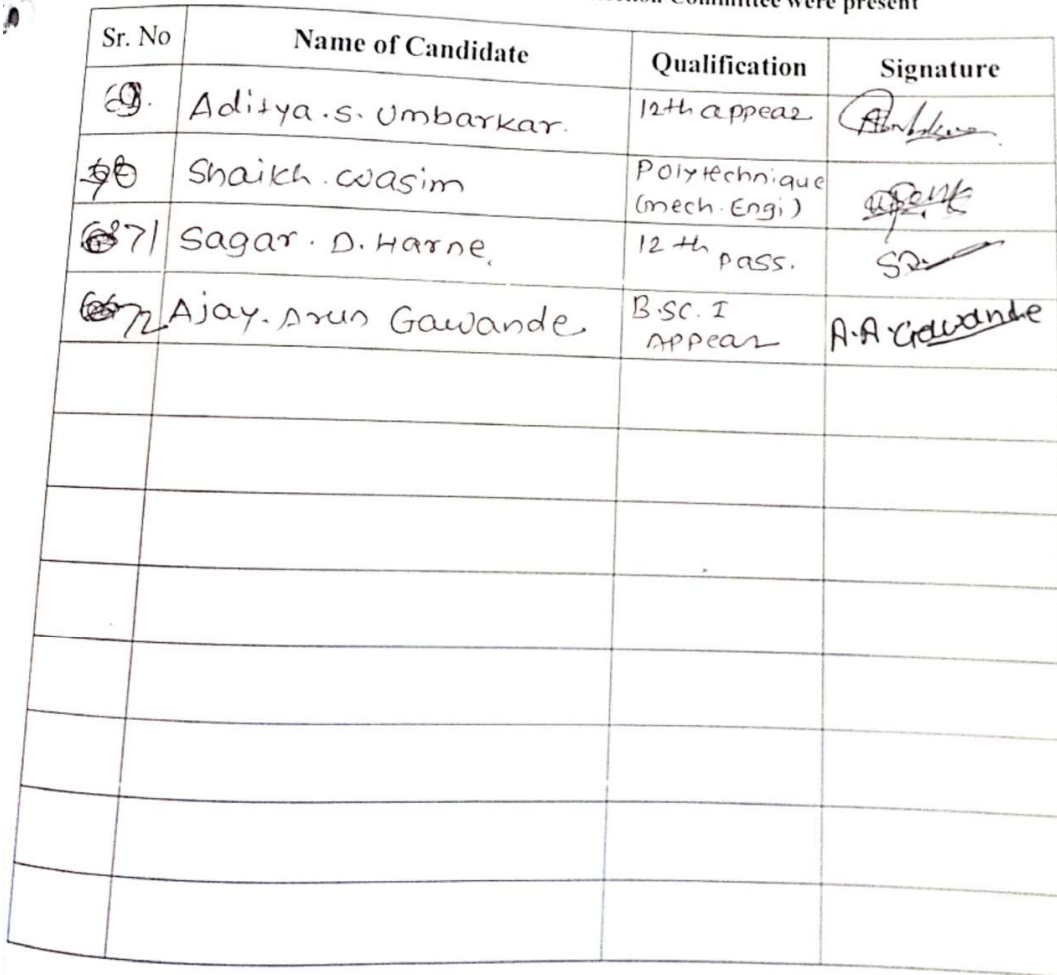 Committee were present
Sr. No Name of Candidate Qualification Signature
69. Aditya.S. Umbarkar. 12th appear
70 Shaikh.wasim Polytechnique
(mech.Engi)
71 Sagar. D. Harne. 12th
pass.
72 Ajay. Arun Gawande B.SC. I
Appear A.A.Gawande